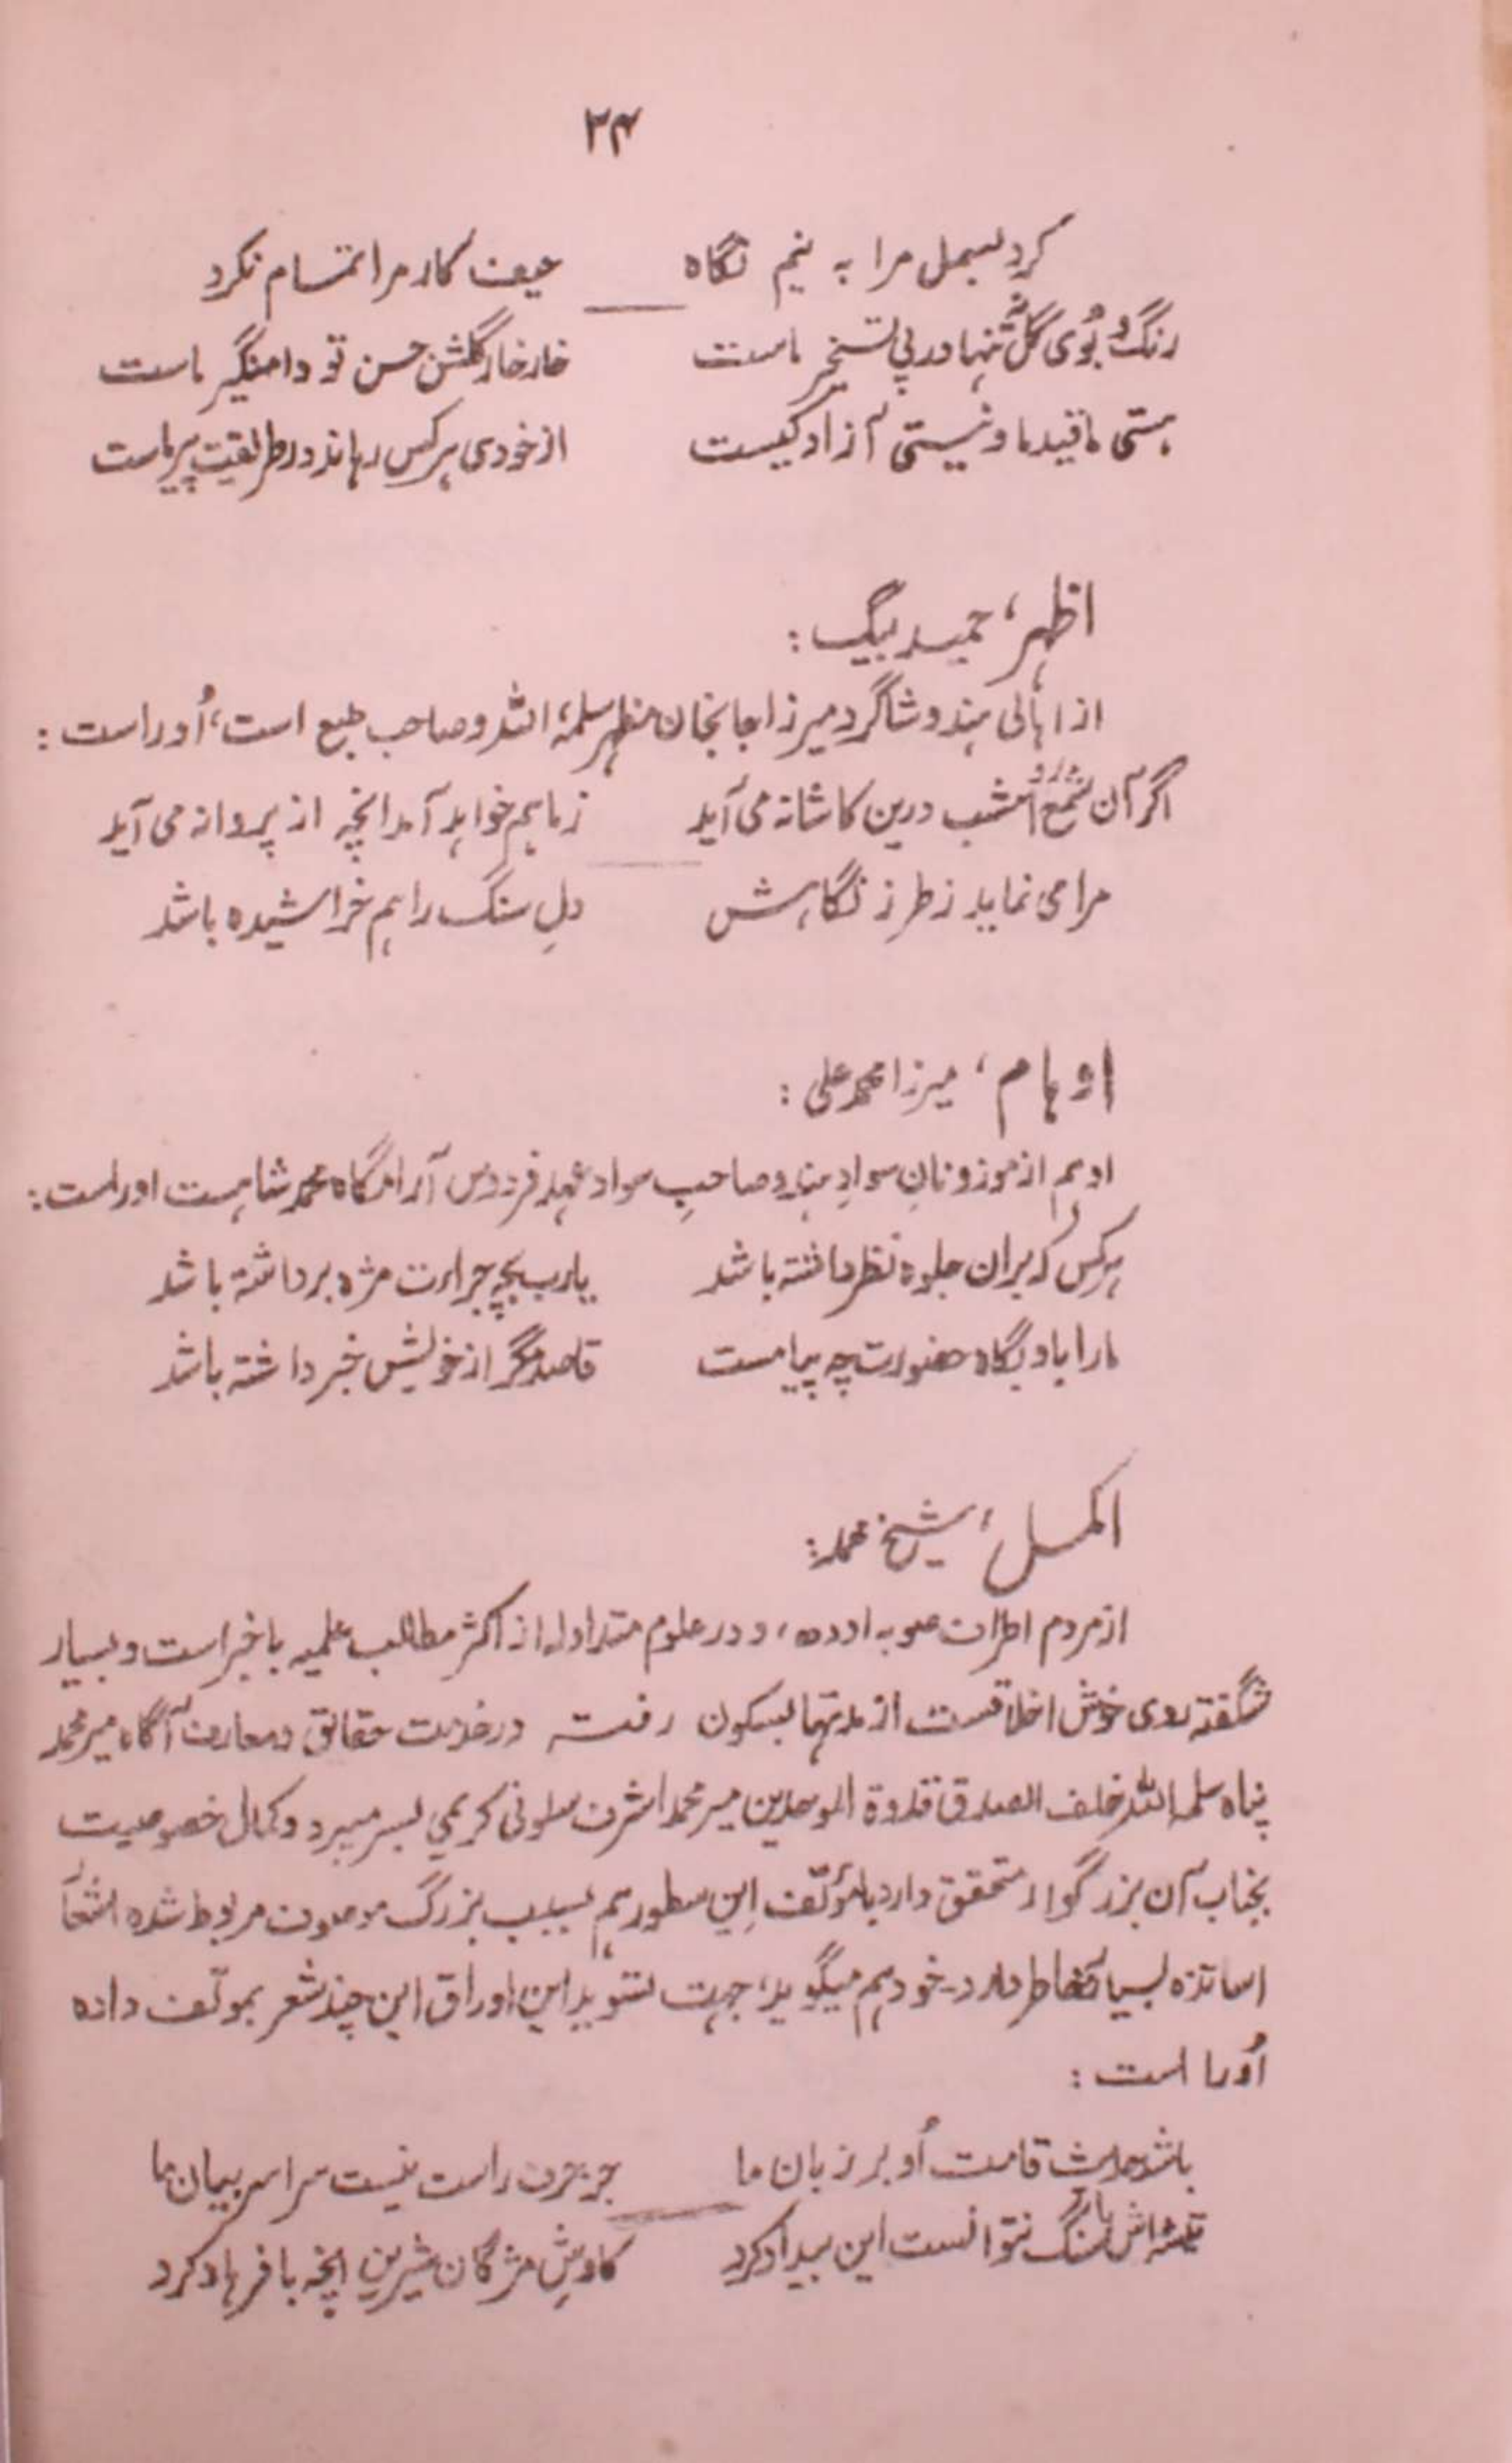 ۲۴
کرد بسمل مرا به نیم نگاه حیف کار مرا تمام نکرد
رنگ و بُوی گل نه تنها در پی تسخیر ماست خار خار گلشن حسن تو دامنگیر ماست
هستی ما قید ما و نیستی آزاد کیست از خودی هر کس رهاند در طریقت پیر ماست
اظہر، حمید بیگ :
از اہالی ہند و شاگرد میرزا جانجانان مظہر سلمہ اللہ و صاحب طبع است، اُو راست :
اگر آن شمع رو امشب درین کاشانه می آید ز ما هم خواهد آمد انچه از پروانه می آید
مرا می نماید ز طرز نگاهش دلِ سنگ را هم خراشیده باشد
اوہام، میرزا محمد علی :
او هم از موزونانِ سوادِ هند و صاحبِ سواد عهد فردوس آرامگاه محمد شاهست او راست :
هر کس که بران جلوه نظر داشته باشد یارب بچه جراءت مژه برداشته باشد
ما را باد بگاه حضورت چه پیامست قاصد مگر از خویش خبر داشته باشد
اکمل، شیخ محمد :
از مردم اطراف صوبه اوده، و در علوم متداوله از اکثر مطالب علمیه باخبر است و بسیار
شگفته روی خوش اخلاقست از مدتها بسکون رفته در خدمت حقائق و معارف آگاه میر محمد
پناه سلمه اللہ خلف الصدق قدوة الموحدین میر محمد اشرف سلونی کریمی بسر میبرد و کمال خصوصیت
بجناب آن بزرگوار متحقق دارد با مؤلّف اِین سطور هم بسبب بزرگ موصوف مربوط شده اشعار
اساتذه بسیار بخاطر دارد۔ خود هم میگوید، جهت تسوید این اوراق این چند شعر بمولّف داده
اُو را است :
باشد حدیث قامت اُو بر زبان ما جز حرف راست نیست سراسر بیان ما
تیشه اش با سنگ نتوانست این بیداد کرد کاوشِ مژگان شیرین انچه با فرهاد کرد